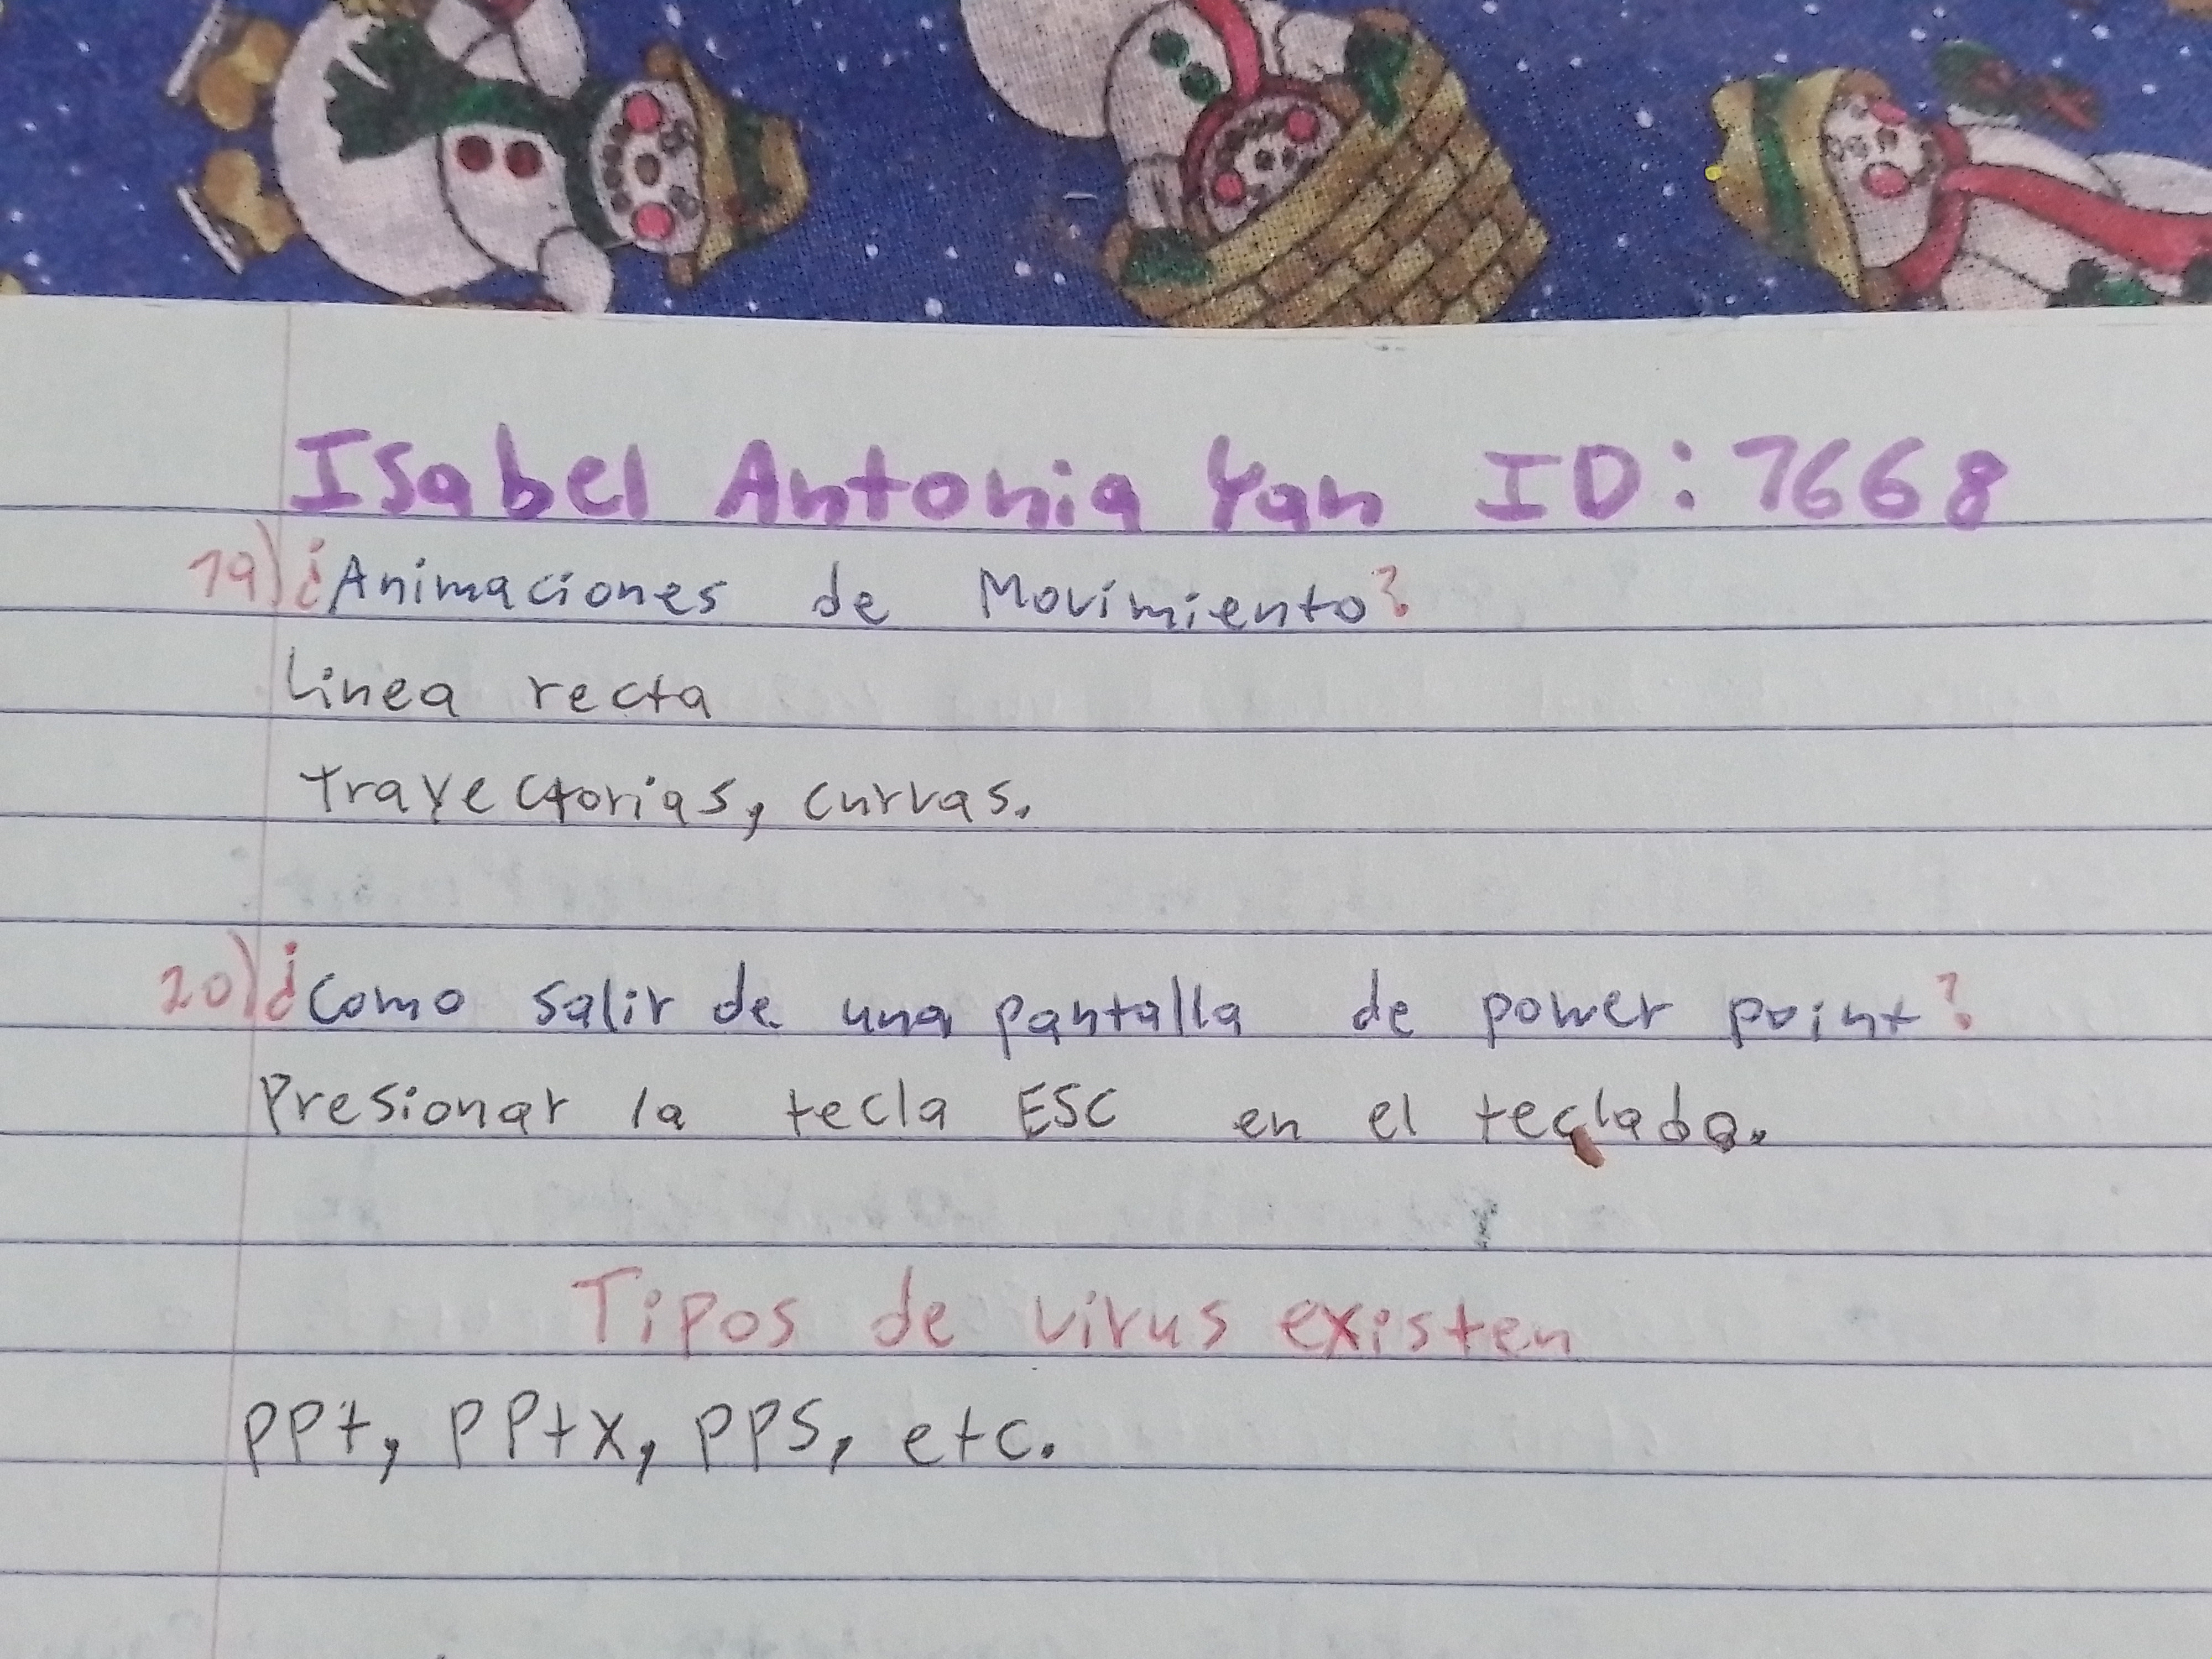 Isabel Antonia Yan ID: 7668
19) ¿Animaciones de Movimiento?
Linea recta
trayectorias, curvas.
20) ¿Como salir de una pantalla de power point?
Presionar la tecla ESC en el teclado.
Tipos de virus existen
PPt, PPtx, PPS, etc.